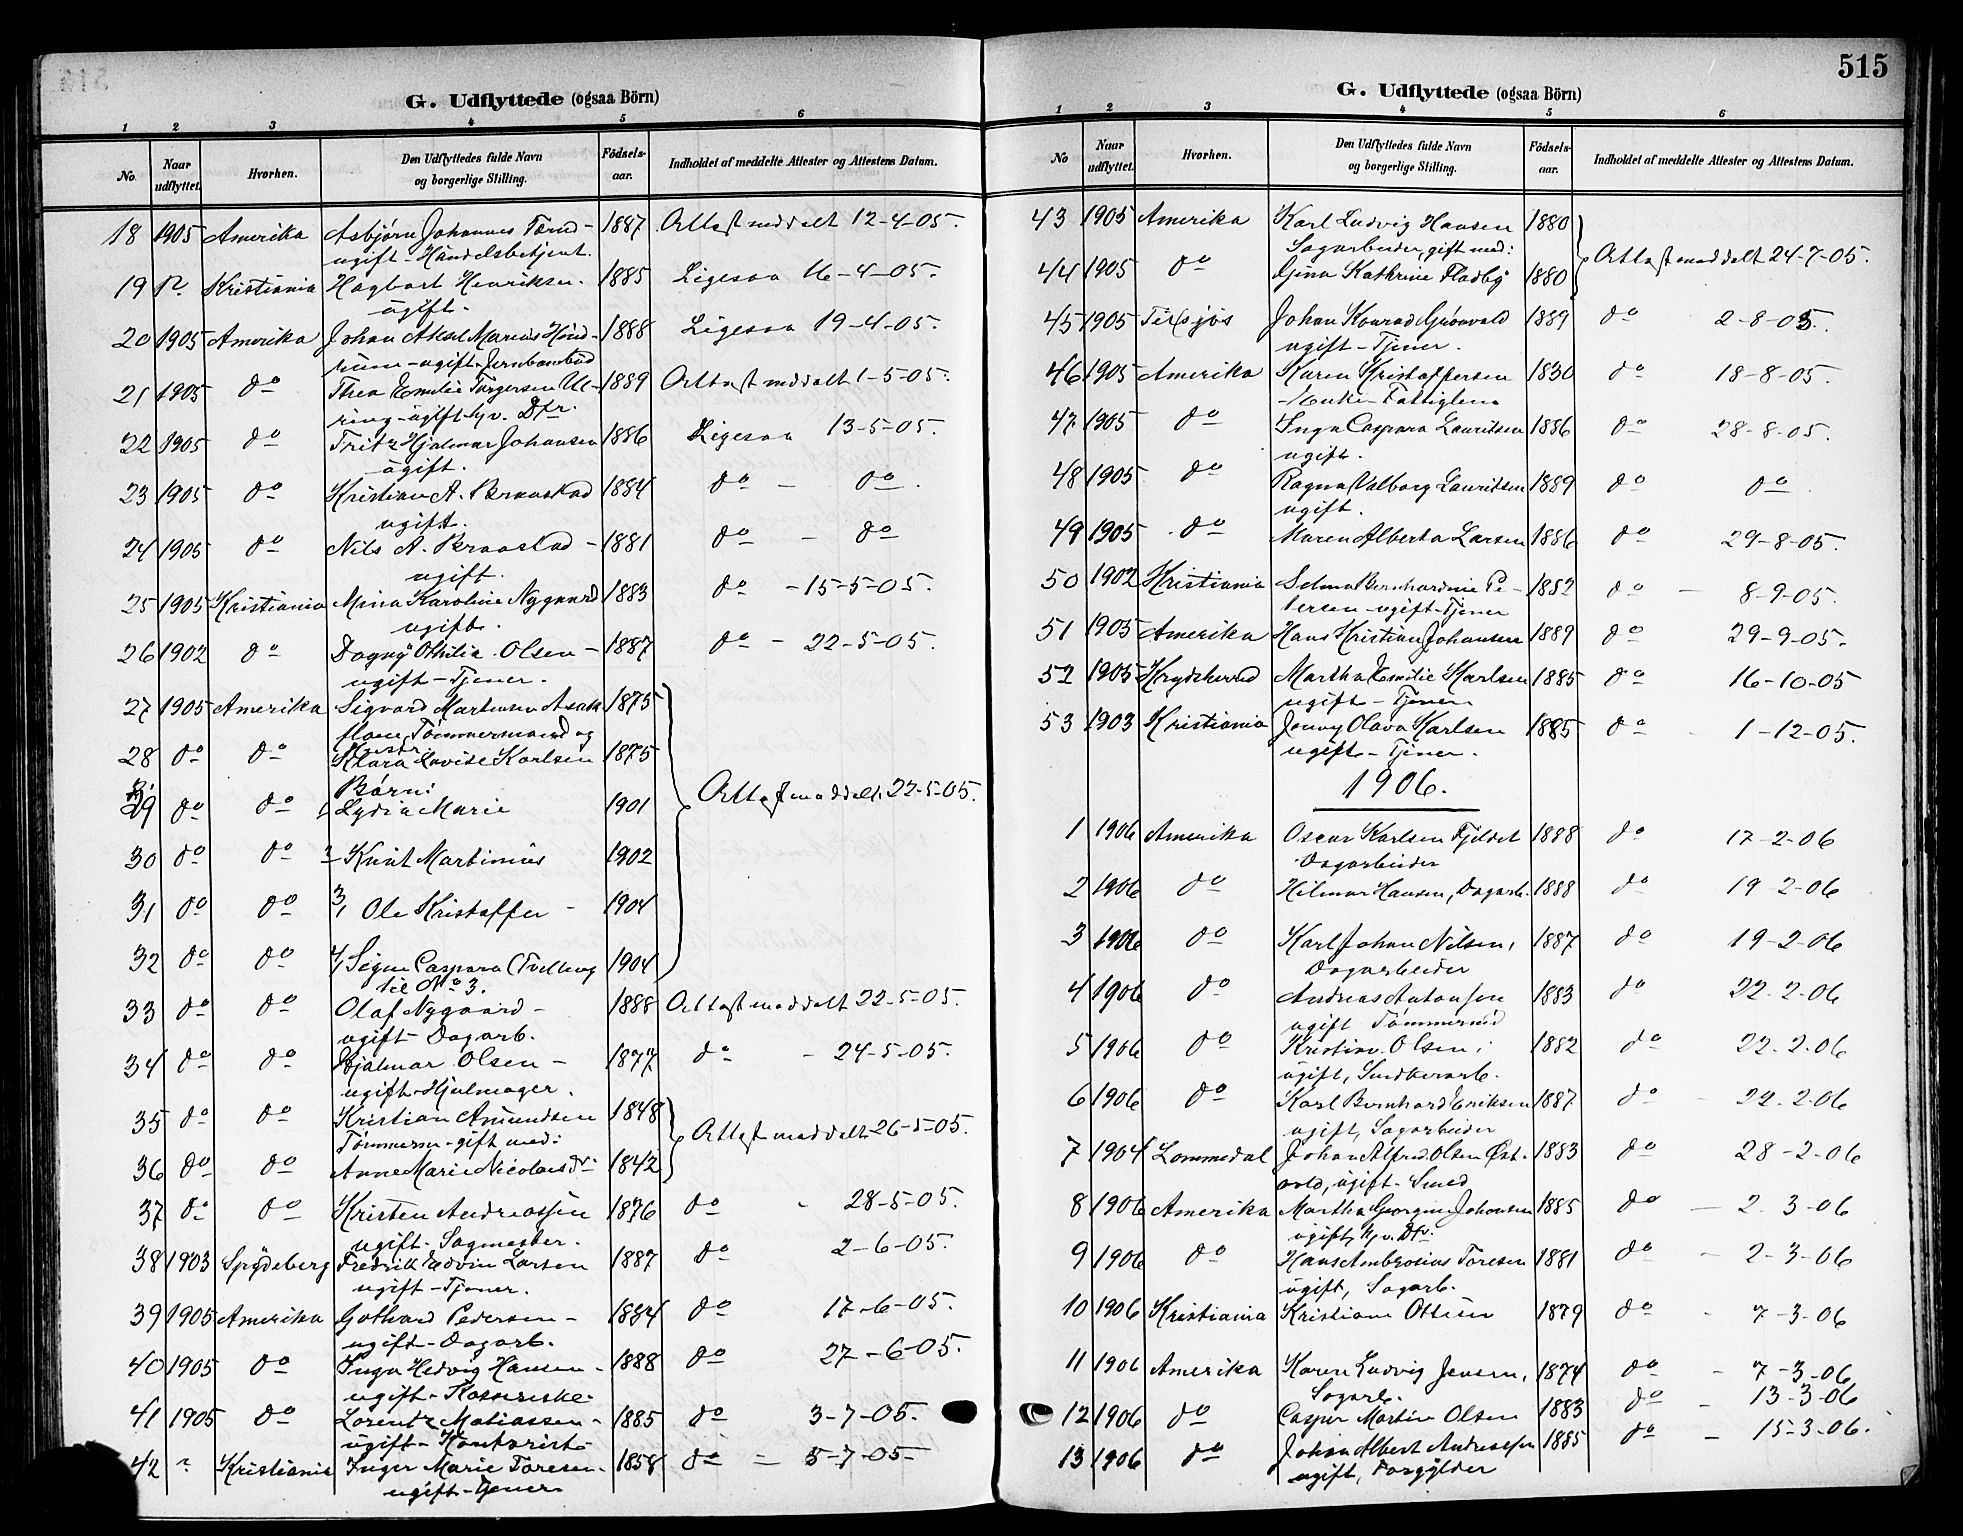 G. Udflyttede (ogsaa Börn)
1 2 3 4 5 6
No. Naar udflyttet. Hvorhen. Den Udflyttedes fulde Navn og borgerlige Stilling. Födsels-aar. Indholdet af meddelte Attester og Attestens Datum.
18 1905 Amerika Asbjørn Johannes 1887 Attest meddelt 12-4-05.
ugift - Handelsbetjent.
19 Kristiania Hagbart Henriksen. 1885 Ligesaa 16-4-05.
ugift.
20 1905 Amerika Johan Aksel Marius 1888 Ligesaa 19-4-05.
ugift
21 1905 do Thea Emilie Torgersen 1889 Attest meddelt 1-5-05.
ugift
22 1905 do Fritz Hjalmar Johansen 1886 Ligesaa 13-5-05.
ugift.
23 1905 do Kristian A. Braastad 1884 do - do.
ugift.
24 1905 do Nils A. Braastad - 1881 do - do
ugift.
25 1905 Kristiania Mina Karoline Nygaard 1883 do - 15-5-05.
ugift.
26 1902 do Dagny Othilie Olsen - 1887 do - 22-5-05.
ugift - Tjener.
27 1905 Amerika Sigvard Martinsen 1875
Tømmermand og
Hustr
28 do do Klara Lovise Karlsen 1875
Børn:
29 do do 1, Lydia Marie 1901 Attest meddelt 22-5-05.
30 do do 2, Knut Martinius 1902
31 do do 3, Ole Kristoffer - 1904
32 do do 4, Signe Caspara (Tvilling 1904
til No 3.
33 do do Olaf Nygaard - 1888 Attest meddelt 22-5-05.
ugift - Dagarb.
34 do do Hjalmar Olsen - 1877 do - 24-5-05.
ugift - Hjulmager.
35 do do Kristian Amundsen 1848 Attest meddelt 26-5-05.
Tømmerm - gift med:
36 do do Anne Marie Nicolaisdr. 1842
37 do do Kristen Andreassen 1876 do - 28-5-05.
ugift - Sagmester.
38 1903 Spydeberg Fredrik Edvin Larsen 1887 do 2-6-05.
ugift - Tjener.
39 1905 Amerika Gothard Pedersen - 1884 do 17-6-05.
ugift - Dagarb.
40 1905 do Inga Hedvig Hansen - 1888 do 27-6-05.
ugift -
41 1905 do Lorentz Matiassen - 1885 do 3-7-05.
ugift - Kontorist -
42 " Kristiania Inger Marie Toresen - 1858 do - 5-7-05
ugift - Tjener
515
G. Udflyttede (ogsaa Börn)
1 2 3 4 5 6
No Naar udflyttet. Hvorhen. Den Udflyttedes fulde Navn og borgerlige Stilling. Födsels-aar. Indholdet af meddelte Attester og Attestens Datum.
43 1905 Amerika Karl Ludvig Hansen 1880
Sagarbeider, gift med: Attest meddelt 24-7-05.
44 1905 do Gina Kathrine Fladby 1880
45 1905 Johan Konrad Grønvold 1889 do 2-8-05.
ugift - Tjener.
46 1905 Amerika Karen Kristoffersen 1830 do 18-8-05.
Enke - Fattiglem
47 1905 do Inga Caspara Lauritsen 1886 do 28-8-05.
ugift.
48 1905 do Ragna Valborg Lauritsen 1889 do do
ugift.
49 1905 do Maren Alberta Larsen 1886 do 29-8-05.
50 1902 Kristiania Selma Bernhardine Pe- 1882 do - 8-9-05.
tersen - ugift - Tjener
51 1905 Amerika Hans Kristian Johansen 1889 do 29-9-05.
52 1905 Krydsherred Martha Emilie Karlsen 1885 do 16-10-05
ugift - Tjener
53 1903 Kristiania Jenny Olava Karlsen 1885 do 1-12-05.
ugift - Tjener.
1906.
1 1906 Amerika Oscar Karlsen Fjeldet 1888 do 17-2-06
Dagarbeider
2 1906 do Hilmar Hansen, Dagarb. 1888 do 19-2-06
3 1906 do Karl Johan Nilsen, 1887 do 19-2-06
Dagarbeider
4 1906 do Andreas Antonsen 1883 do 22-2-06
ugift Tømmermd
5 1906 do Kristian Olsen, 1882 do 22-2-06
ugift, Snedkerarb.
6 1906 do Karl Bernhard Eriksen 1887 do - 22-2-06
ugift, Sagarbeider
7 1904 Lommedal Johan Alfred Olsen Øst- 1883 do 28-2-06
vold, ugift - Smed
8 1906 Amerika Martha Georgine Johansen 1885 do - 2-3-06
ugift, hjv. Dtr.
9 1906 do Hans Ambrosius Toresen 1881 do - 2-3-06
ugift, Sagarb.
10 1906 Kristiania Kristiane Ottesen 1879 do - 7-3-06
11 1906 Amerika Karen Ludvig Jensen, 1874 do - 7-3-06
Sagarb.
12 1906 do Caspar Martin Olsen 1883 do - 13-3-06
13 1906 do Johan Albert Andreassen 1885 do - 15-3-06.
ugift, Forgylder